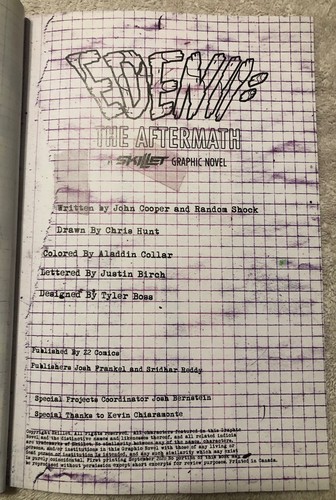 EDEN II:
THE AFTERMATH
A SKILLET GRAPHIC NOVEL
Written by John Cooper and Random Shock
Drawn By Chris Hunt
Colored By Aladdin Collar
Lettered By Justin Birch
Designed By Tyler Boss
Published By Z2 Comics
Publishers Josh Frankel and Sridhar Reddy
Special Projects Coordinator Josh Bernstein
Special Thanks to Kevin Chiaramonte
Copyright Skillet. All rights reserved. All characters featured in this Graphic
Novel and the distinctive names and likenesses thereof, and all related indicia
are trademarks of Skillet. No similarity between any of the names, characters,
persons, and/or institutions in this Graphic Novel with those of any living or
dead person or institution is intended, and any such similarity which may exist
is purely coincidental. First printing September 2020. No portion of this book may
be reproduced without permission except short excerpts for review purposes. Printed in Canada.